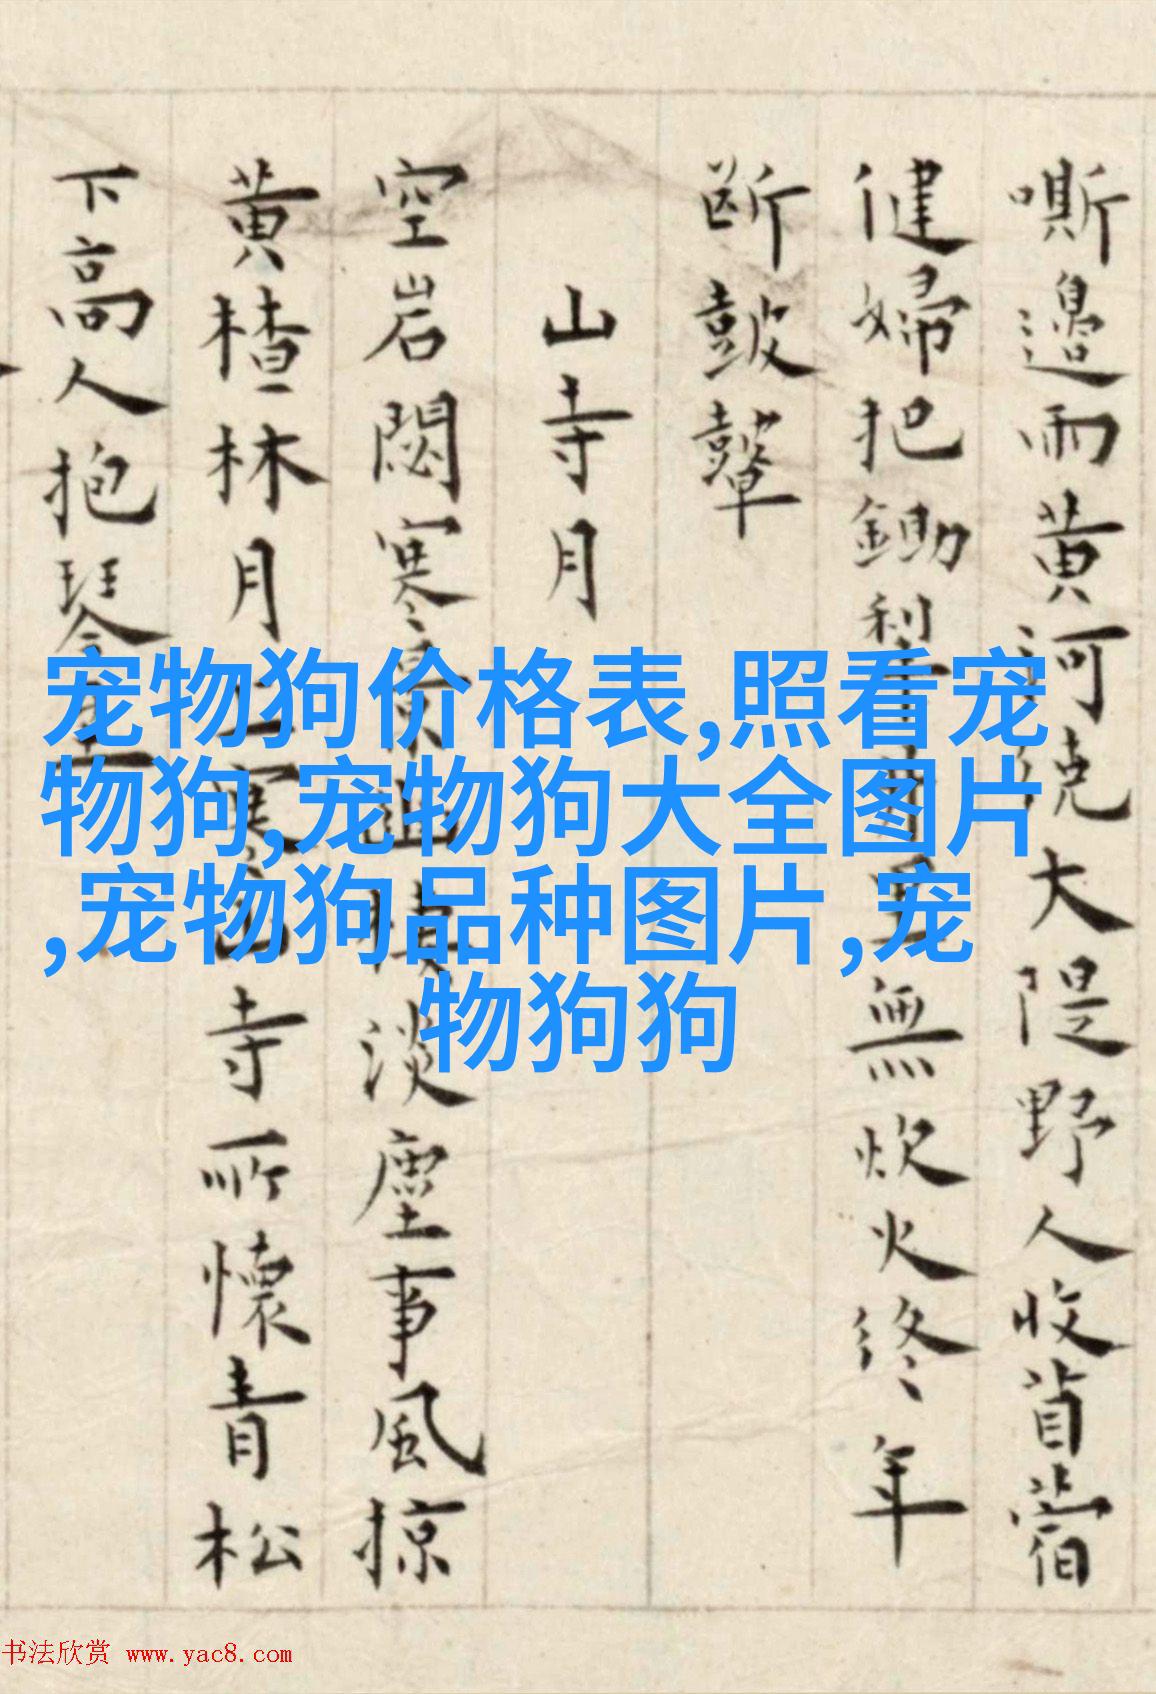 嘶邊雨黄河克大隄野人收貲菪
健婦把鋤犁無炊火終年
斷鼓鼙
山寺月
空岩閟寒淡塵事風掠
黄楂林月寺所懷青松
下高人抱琴
宠物狗价格表,照看宠
物狗,宠物狗大全图片
,宠物狗品种图片,宠
物狗狗
书法欣赏 www.yac8.com